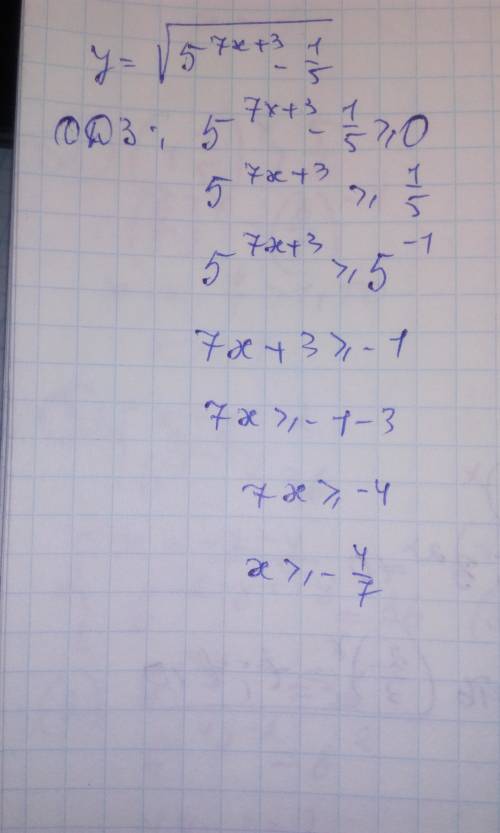 y = √(5^(7x+3) - 1/5)
ОДЗ: 5^(7x+3) - 1/5 ⩾ 0
5^(7x+3) ⩾ 1/5
5^(7x+3) ⩾ 5^(-1)
7x + 3 ⩾ -1
7x ⩾ -1 - 3
7x ⩾ -4
x ⩾ - 4/7